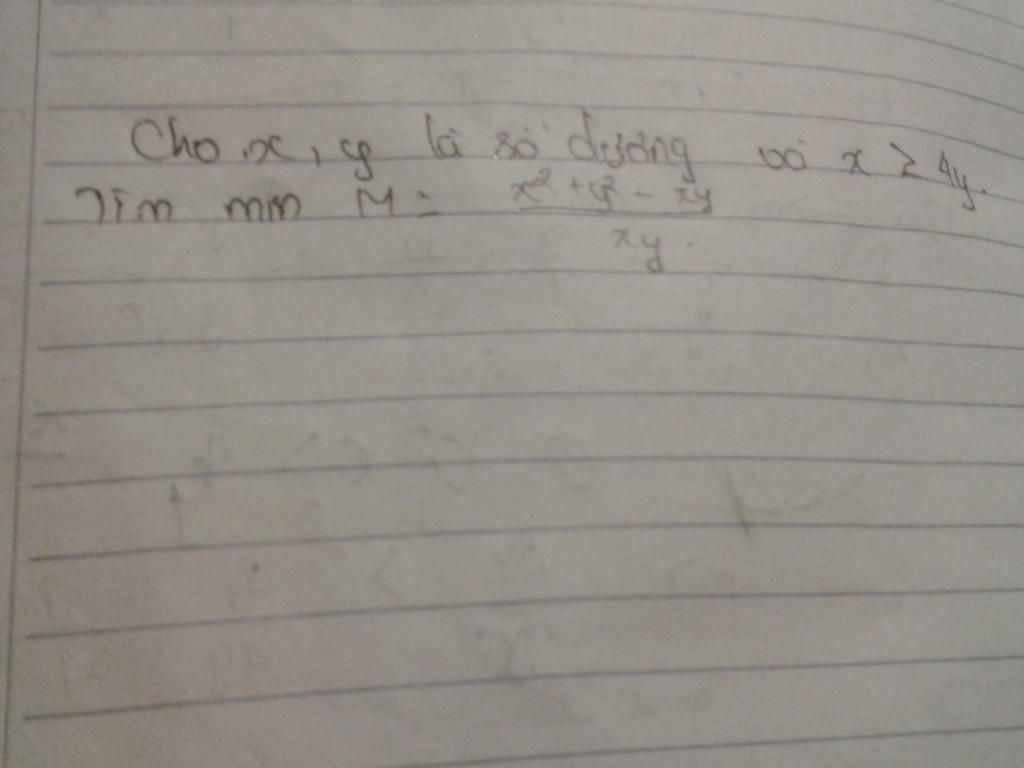 Cho x, y là số dương và x ≥ 4y.
Tìm min M = \frac{x² + y² - xy}{xy}.